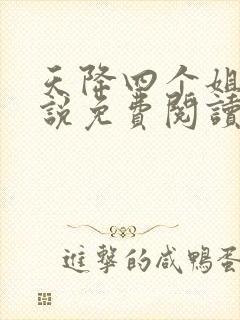 天降四个姐
說免費閱讀
進擊的咸鴨蛋